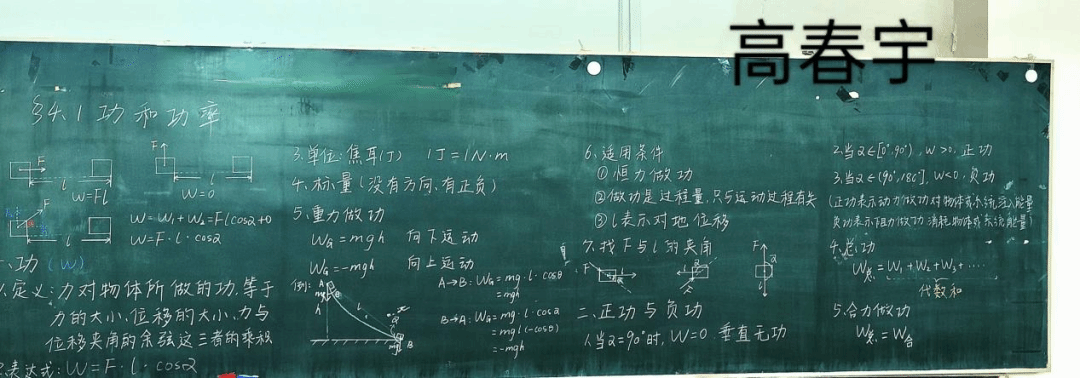 高春宇
§4.1 功和功率
F
l
W=Fl
F
l
W=0
F
l
W=W₁+W₂=Flcosα+0
W=F·l·cosα
一、功(W)
1.定义:力对物体所做的功,等于
力的大小、位移的大小、力与
位移夹角的余弦这三者的乘积
2.表达式:W=F·l·cosα
3.单位:焦耳(J) 1J=1N·m
4.标量(没有方向,有正负)
5.重力做功
W_G=mgh 向下运动
W_G=-mgh 向上运动
例: A
mg
h
l
α
mg
B
A→B: W_G=mg·l·cosθ
=mgh
B→A: W_G=mg·l·cosα
=mgl(-cosθ)
=-mgh
6.适用条件
①恒力做功
②做功是过程量,只与运动过程有关
③l表示对地位移
7.找F与l的夹角
F
l
F
α
二、正功与负功
1.当α=90°时,W=0 垂直无功
2.当α∈[0°,90°),W>0,正功
3.当α∈(90°,180°],W<0,负功
(正功表示动力做功对物体或系统注入能量
负功表示阻力做功 消耗物体或系统能量)
4.总功
W总=W₁+W₂+W₃+····
代数和
5.合力做功
W总=W合